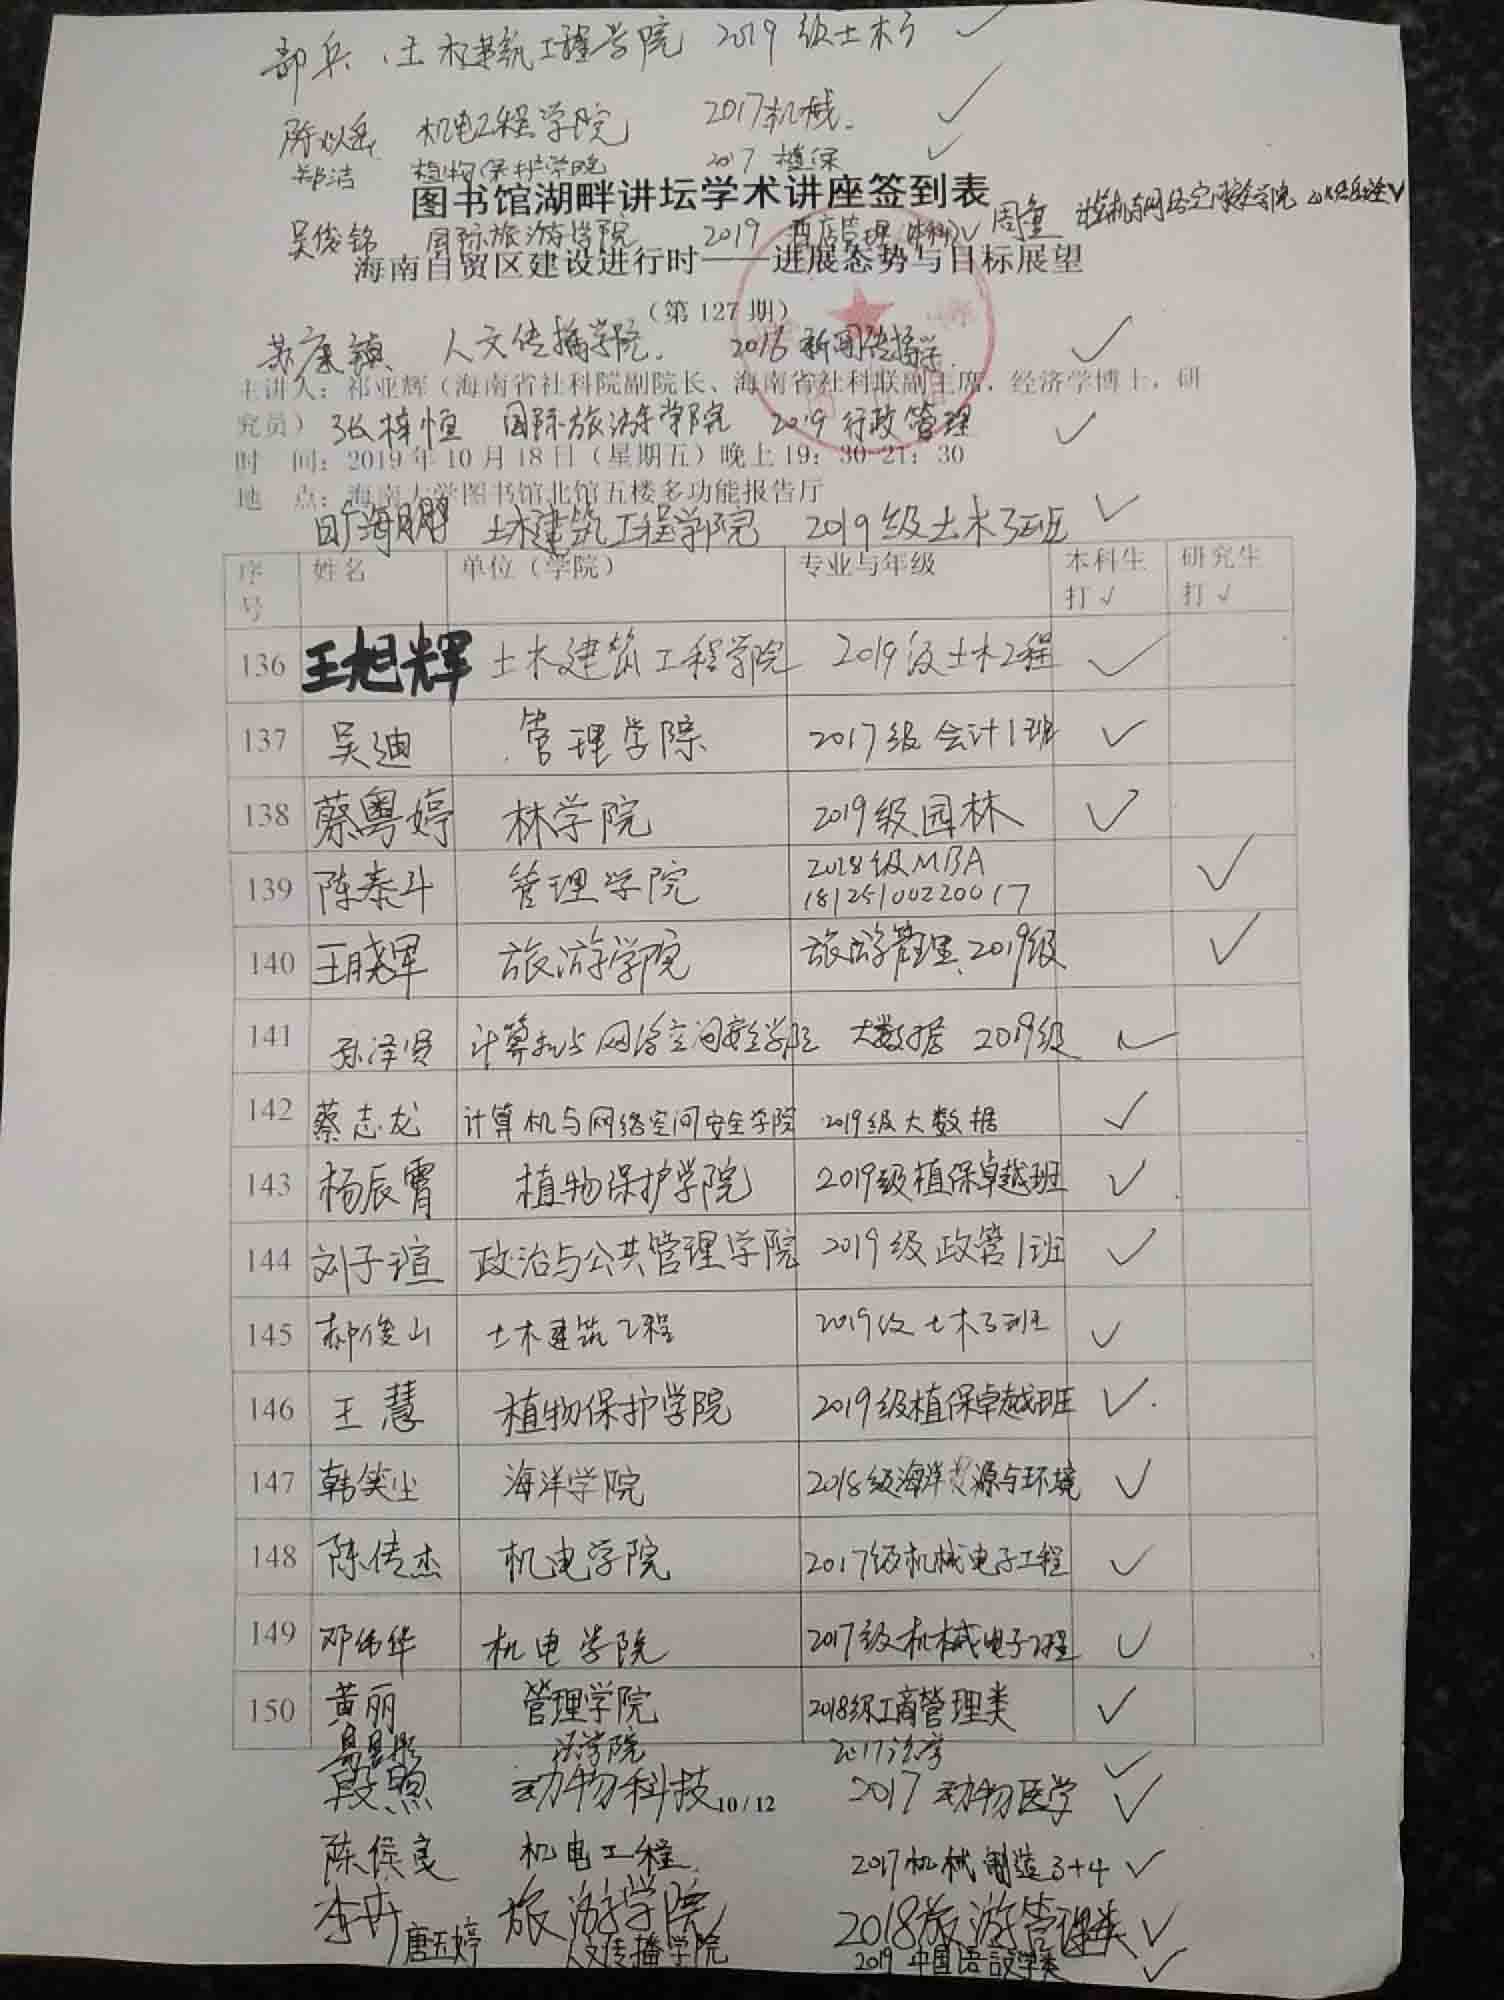 兵 土木建筑工程学院 2019级土木
机电工程学院 2017机械
郑洁 植物保护学院 2017 植保
图书馆湖畔讲坛学术讲座签到表
吴俊铭 国际旅游学院 2019 酒店管理(本科)✓ 周 计算机与网络空间安全学院 ✓
海南自贸区建设进行时——进展态势与目标展望
(第127期)
苏康镇 人文传播学院. 2016 新闻传播学.
主讲人:祁亚辉(海南省社科院副院长、海南省社科联副主席,经济学博士,研
究员) 张梓恒 国际旅游学院 2019 行政管理
时 间:2019年10月18日(星期五)晚上19:30-21:30
地 点:海南大学图书馆北馆五楼多功能报告厅
旷海朋 土木建筑工程学院 2019级土木3班 ✓
序号 姓名 单位(学院) 专业与年级 本科生打√ 研究生打√
136 王旭辉 土木建筑工程学院 2019级土木工程 ✓
137 吴迪 管理学院 2017级会计1班 ✓
138 蔡粤婷 林学院 2019级园林 ✓
139 陈泰斗 管理学院 2018级MBA 18125100220017 ✓
140 王晓军 旅游学院 旅游管理、2019级 ✓
141 孙泽贤 计算机与网络空间安全学院 大数据 2019级 ✓
142 蔡志龙 计算机与网络空间安全学院 2019级大数据 ✓
143 杨辰霄 植物保护学院 2019级植保卓越班 ✓
144 刘子瑄 政治与公共管理学院 2019级政管1班 ✓
145 郝俊山 土木建筑工程 2019级土木3班 ✓
146 王慧 植物保护学院 2019级植保卓越班 ✓
147 韩笑尘 海洋学院 2018级海洋资源与环境 ✓
148 陈传杰 机电学院 2017级机械电子工程 ✓
149 邓伟华 机电学院 2017级机械电子工程 ✓
150 黄丽 管理学院 2018级工商管理类 ✓
法学院 2017法学 ✓
段煦 动物科技 2017动物医学 ✓
10 / 12
陈俊良 机电工程 2017机械制造3+4 ✓
李卉 旅游学院 2018旅游管理类 ✓
唐玉婷 人文传播学院 2019中国语言文学类 ✓